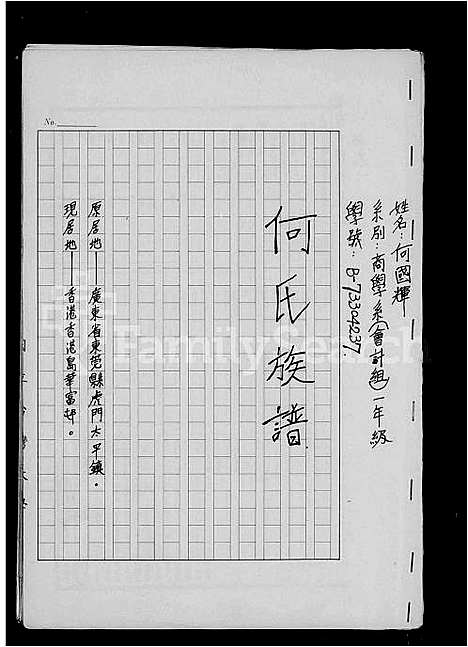 姓名：何國輝
系別：商學系（會計組）一年級
學號：B-7334237.
何氏族譜
原居地——廣東省東莞縣虎門太平鎮。
現居地——香港香港島華富邨。
No.
FamilySearch